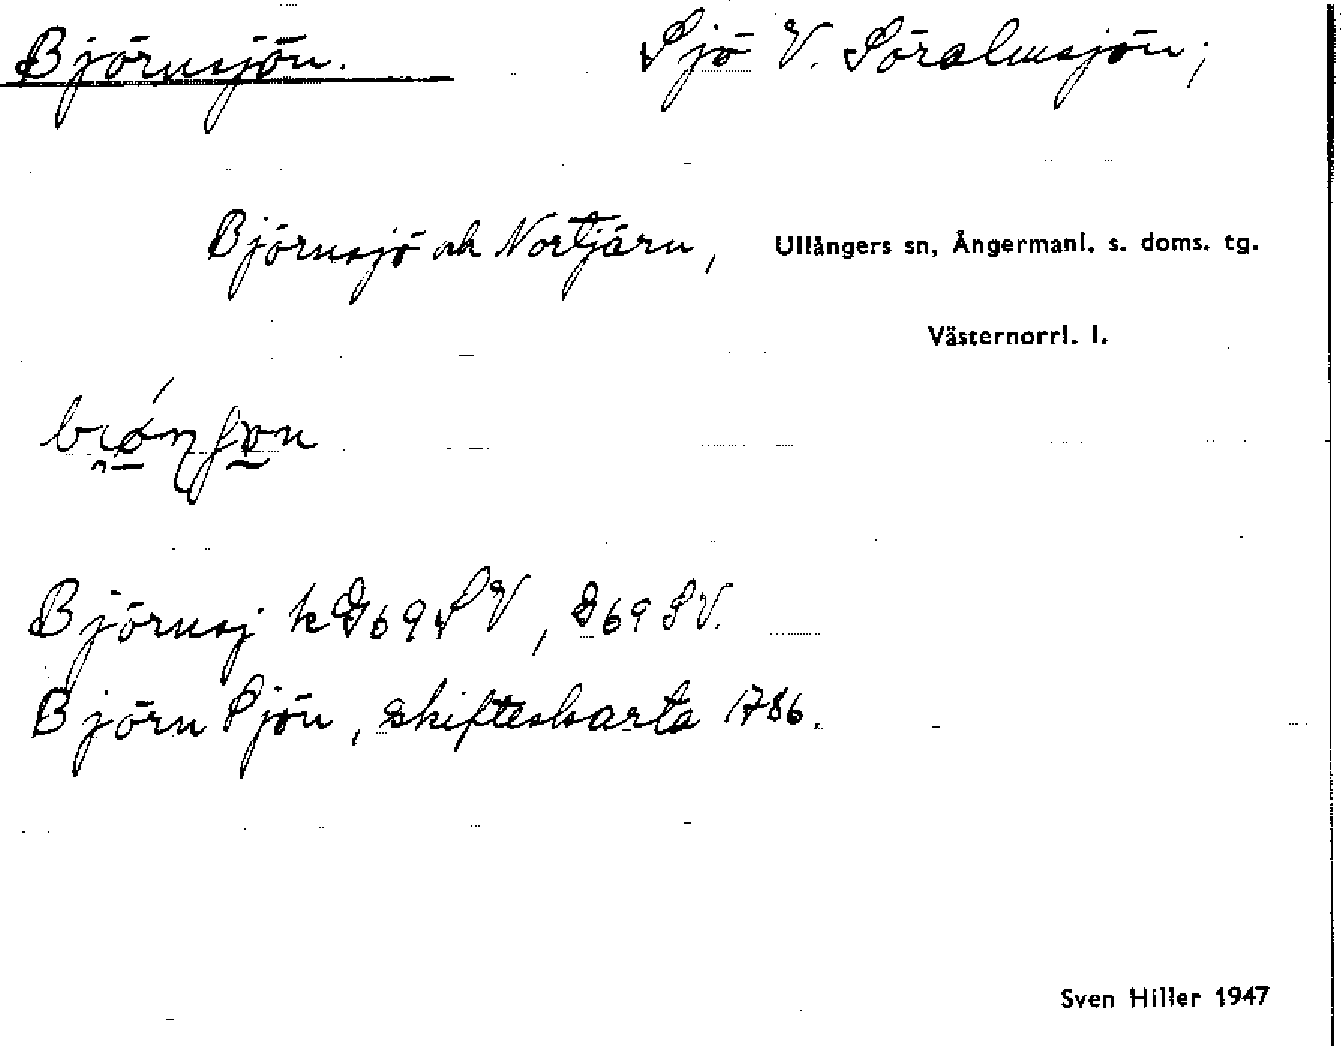 Björnsjön. Sjö V. Söralmsjön;
Björnsjö och Nortjärn, Ullångers sn, Ångermanl. s. doms. tg.
Västernorrl. l.
Björnsj 69 SV, 69 SV.
Björn Sjön, skifteskarta 1786.
Sven Hiller 1947